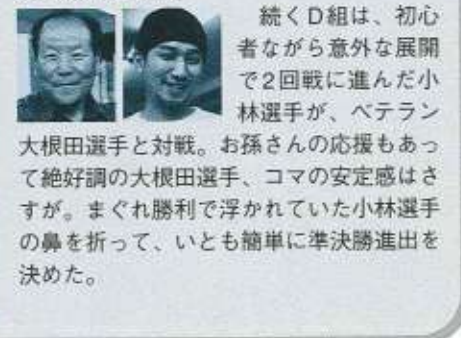 続くD組は、初心
者ながら意外な展開
で2回戦に進んだ小
林選手が、ベテラン
大根田選手と対戦。お孫さんの応援もあっ
て絶好調の大根田選手、コマの安定感はさ
すが。まぐれ勝利で浮かれていた小林選手
の鼻を折って、いとも簡単に準決勝進出を
決めた。